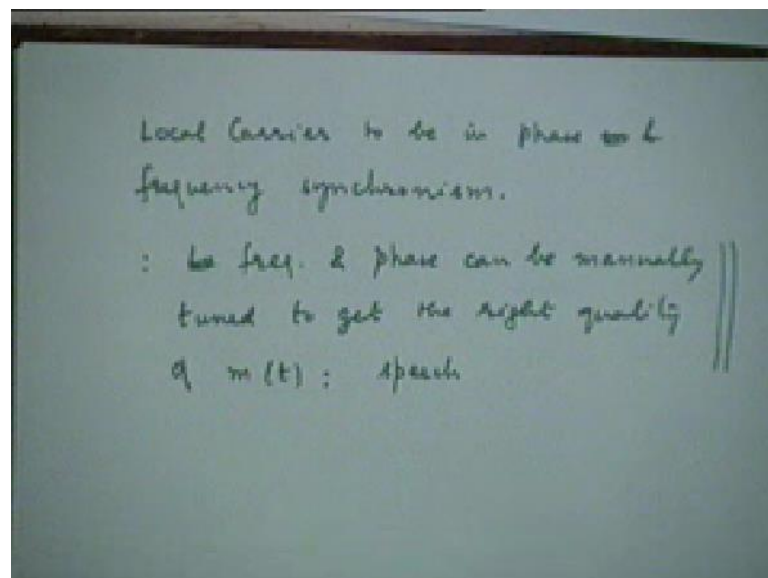 Local Carrier to be in phase &
frequency synchronism.
: freq. & phase can be manually
tuned to get the right quality
of m(t) : speech